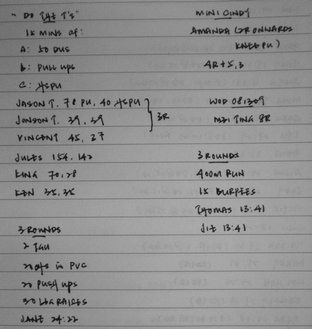 "DO THE T'S"
15 MINS OF:
A: 50 DUS
B: PULL UPS
C: HSPU
JASON T. 78 PU, 40 HSPU
JONSON T. 39, 39
VINCENT 45, 27
3R
JULES 154, 142
KING 70, 28
KEN 35, 35
3 ROUNDS
2 TGU
20 OHS in PVC
20 PUSH UPS
30 LEG RAISES
JANE 24:22
MINI CINDY
AMANDA (2R ONWARDS
KNEE PU)
4R+5,3
WOD 081309
MEI TING 8R
3 ROUNDS
400M RUN
15 BURPEES
THOMAS 13:41
JIE 13:41